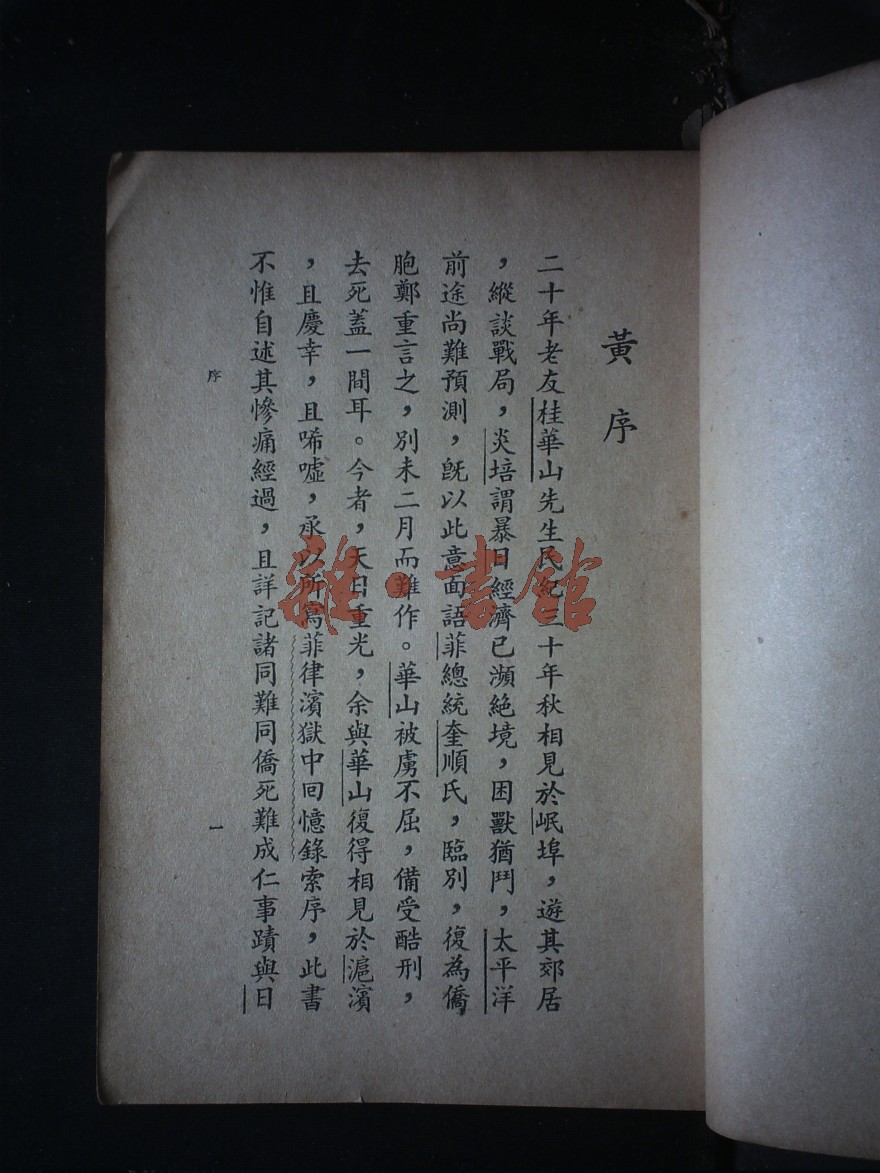 黃序
二十年老友桂華山先生民紀三十年秋相見於岷埠，遊其郊居
，縱談戰局，炎培謂暴日經濟已瀕絶境，困獸猶鬥，太平洋
前途尚難預測，旣以此意面語菲總統奎順氏，臨別，復為僑
胞鄭重言之，別未二月而難作。華山被虜不屈，備受酷刑，
去死蓋一間耳。今者，天日重光，余與華山復得相見於滬濱
，且慶幸，且唏噓，承以所寫菲律濱獄中回憶錄索序，此書
不惟自述其慘痛經過，且詳記諸同難同僑死難成仁事蹟與日
序
一
雜·書館